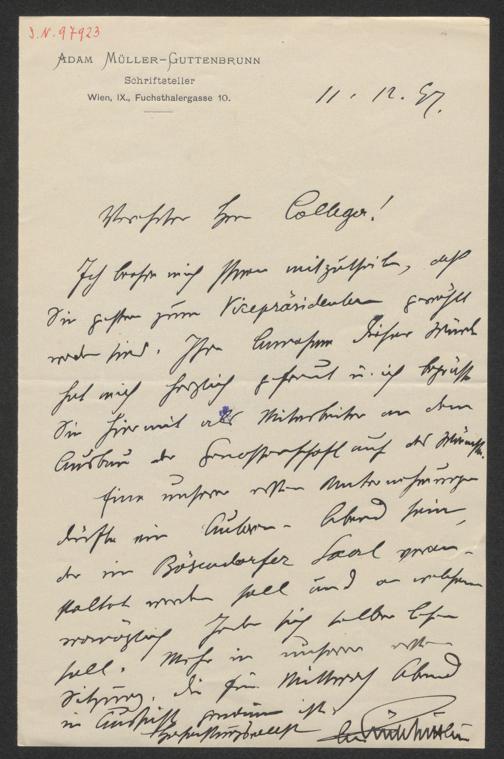 J. N. 97923
ADAM MÜLLER-GUTTENBRUNN
Schriftsteller
Wien, IX., Fuchsthalergasse 10.
11. 12. 97.
Verehrter Herr College!
Ich beehre mich Ihnen mitzutheilen, daß
Sie gestern zum Vicepräsidenten gewählt
worden sind. Ihre Annahme dieser Würde
hat mich herzlich gefreut u. ich begrüße
Sie hiermit als Mitarbeiter an dem
Ausbau der Genossenschaft auf das
Eine unserer ersten Unternehmungen
dürfte ein Autoren-Abend sein,
der im Bösendorfer Saal veran-
staltet werden soll und an welchem
Jeder sich selber lesen
soll. Mehr in unserer ersten
Sitzung, die für Mittwoch Abend
in Aussicht genommen ist.